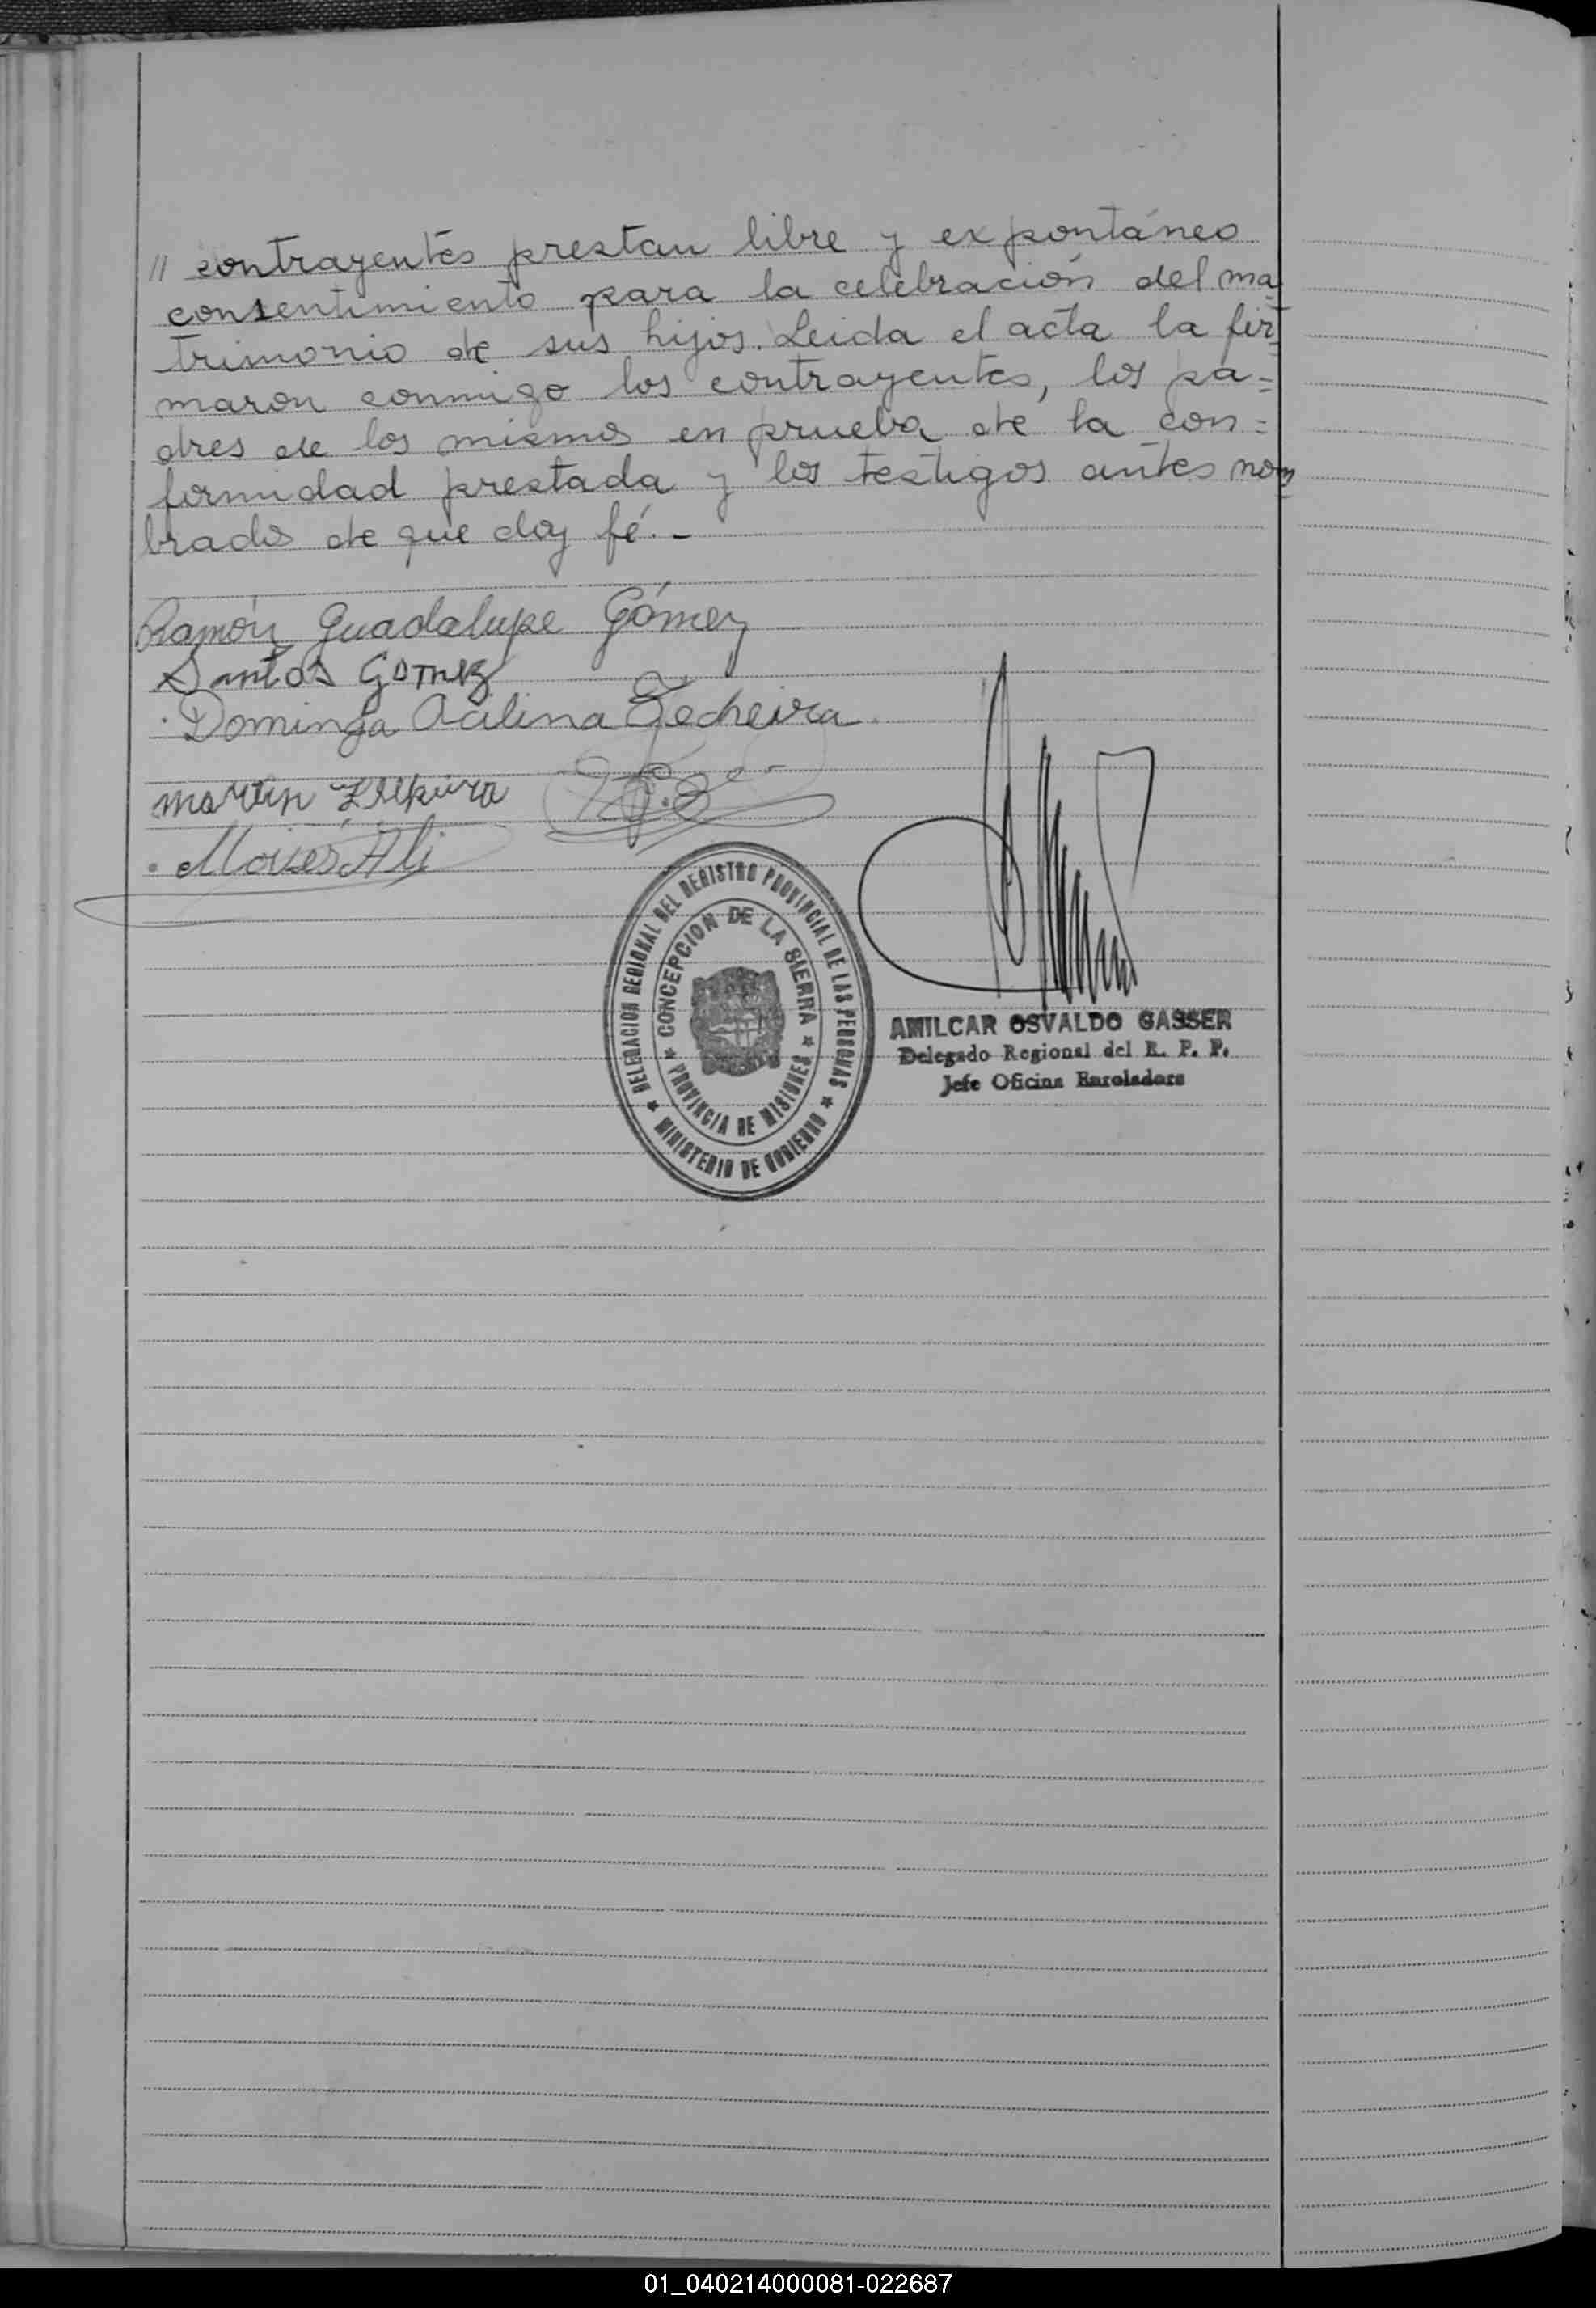 // contrayentes prestan libre y expontáneo
consentimiento para la celebración del ma=
trimonio de sus hijos. Leida el acta la fir=
maron conmigo los contrayentes, los pa=
dres de los mismos en prueba de la con=
formidad prestada y los testigos antes nom=
brados de que doy fé.-
Ramón Guadalupe Gómez
Santos Gomez
Dominga Aculina Techeira
martin
Moises Ali
DELEGACION REGIONAL DEL REGISTRO PROVINCIAL DE LAS PERSONAS
★ MINISTERIO DE GOBIERNO ★
CONCEPCION DE LA SIERRA
★ PROVINCIA DE MISIONES ★
AMILCAR OSVALDO GASSER
Delegado Regional del R. P. P.
Jefe Oficina Enroladora
01_040214000081-022687